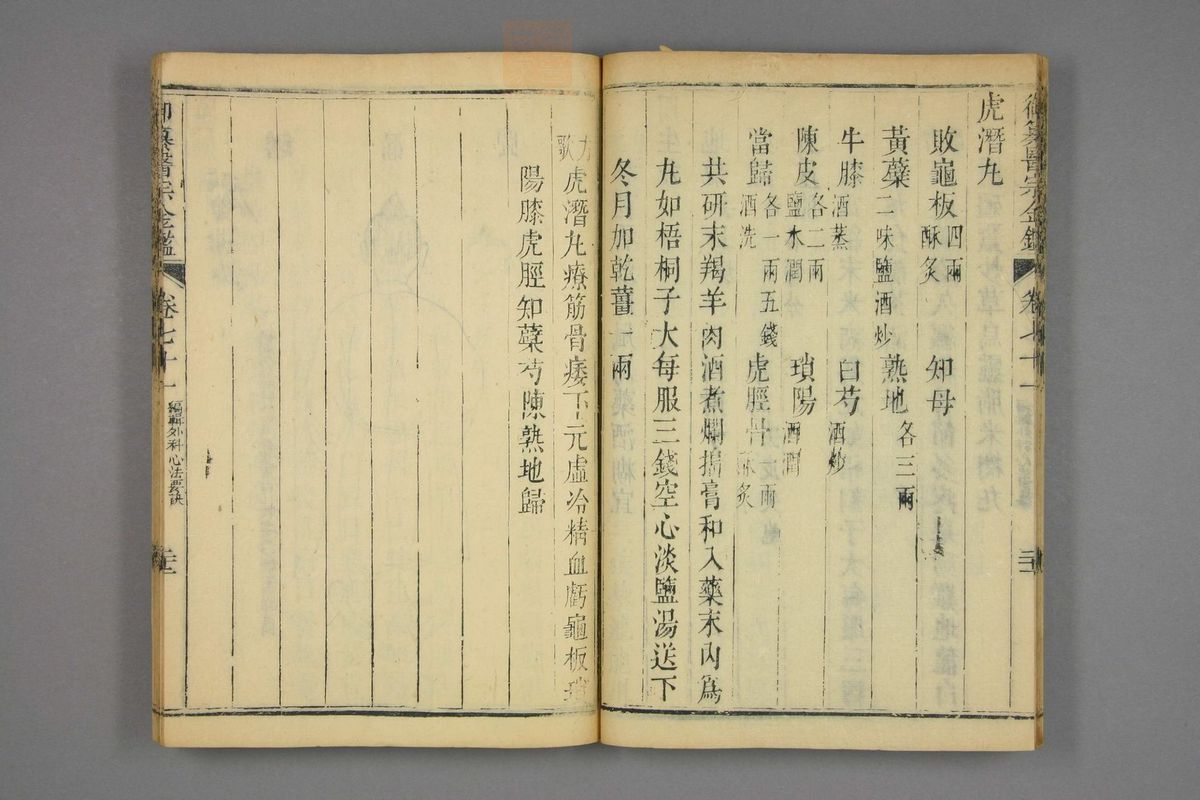 虎潛丸
敗龜板四兩酥炙 知母
黃蘗二味鹽酒炒 熟地各三兩
牛膝酒蒸 白芍酒炒
陳皮各二兩鹽水潤 瑣陽酒潤
當歸各一兩五錢酒洗 虎脛骨一兩酥炙
共研末羯羊肉酒煮爛搗膏和入藥末內爲
丸如梧桐子大每服三錢空心淡鹽湯送下
冬月加乾薑一兩
方歌虎潛丸療筋骨痿下元虛冷精血虧龜板瑣
陽膝虎脛知蘗芍陳熟地歸
御纂醫宗金鑑 卷七十一 編輯外科心法要訣